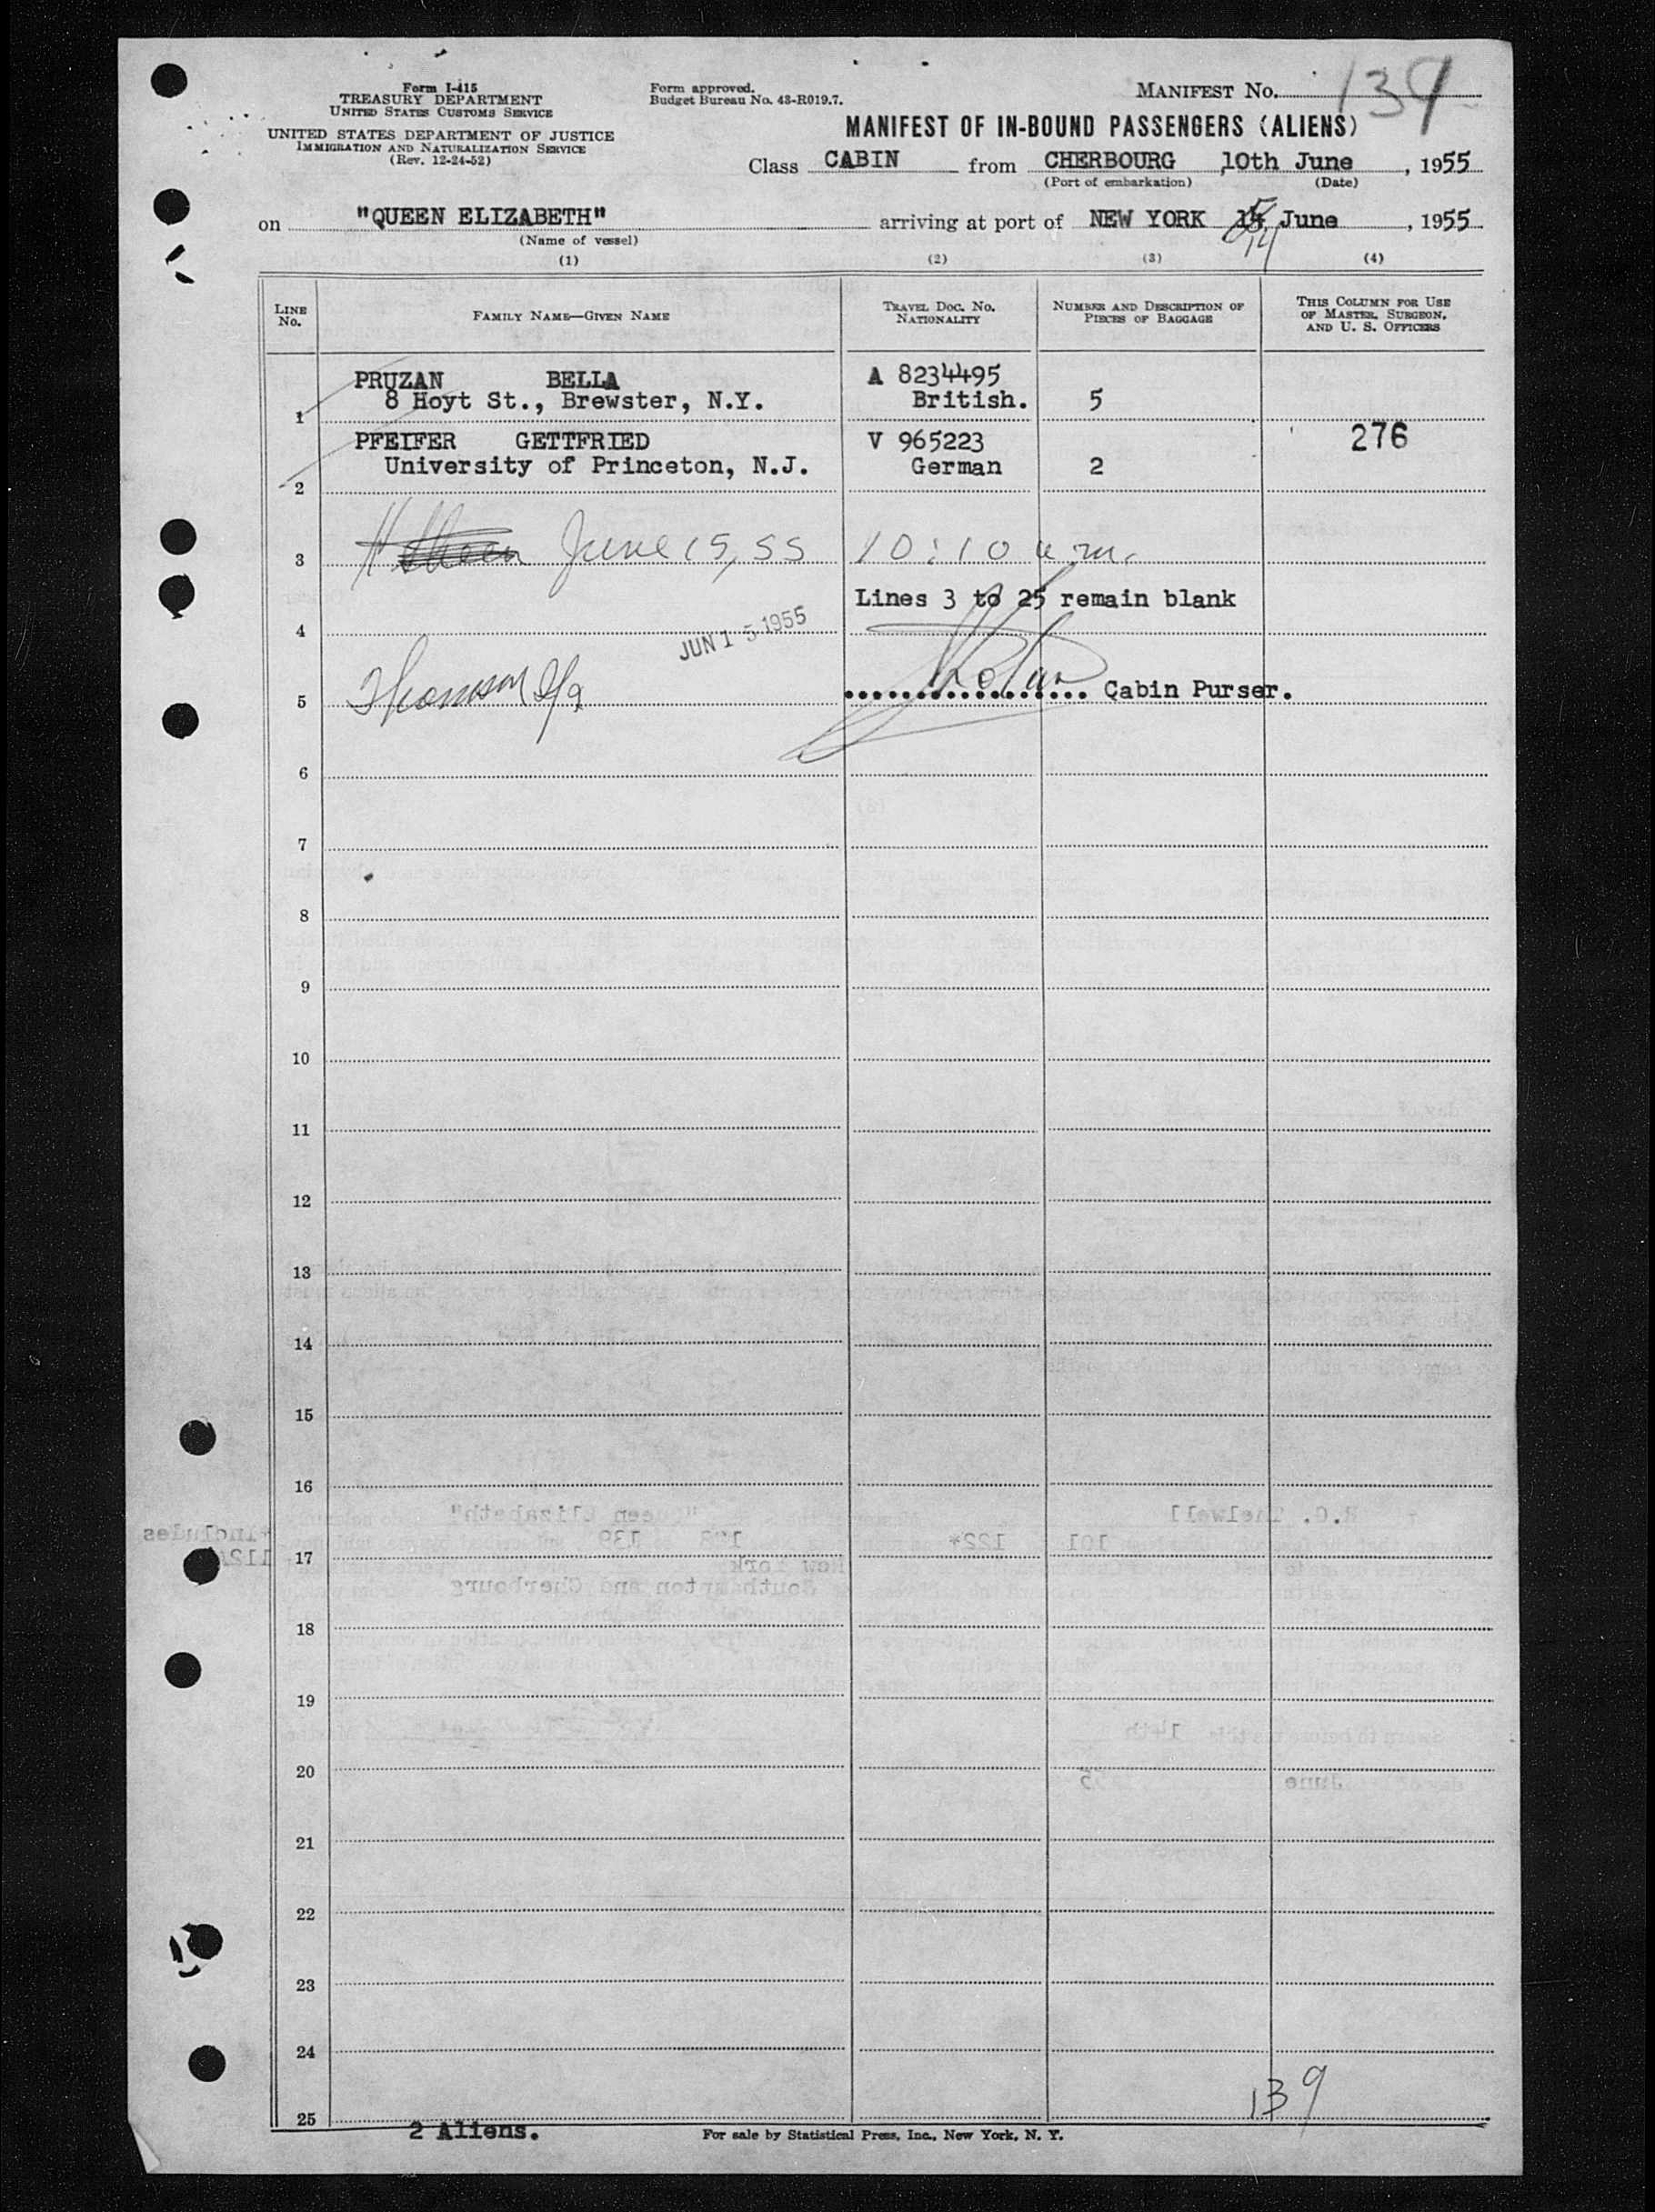 Form I-415
TREASURY DEPARTMENT
UNITED STATES CUSTOMS SERVICE
UNITED STATES DEPARTMENT OF JUSTICE
IMMIGRATION AND NATURALIZATION SERVICE
(Rev. 12-24-52)
Form approved.
Budget Bureau No. 43-R019.7.
MANIFEST NO. 139
MANIFEST OF IN-BOUND PASSENGERS (ALIENS)
Class CABIN from CHERBOURG , 10th June , 1955
(Port of embarkation) (Date)
on "QUEEN ELIZABETH" arriving at port of NEW YORK 14 June , 1955
(Name of vessel)
(1) (2) (3) (4)
LINE No. FAMILY NAME—GIVEN NAME TRAVEL DOC. NO. NATIONALITY NUMBER AND DESCRIPTION OF PIECES OF BAGGAGE THIS COLUMN FOR USE OF MASTER, SURGEON, AND U. S. OFFICERS
PRUZAN BELLA A 8234495
1 8 Hoyt St., Brewster, N.Y. British. 5
PFEIFER GETTFRIED V 965223 276
2 University of Princeton, N.J. German 2
3 June 15, 55 10:10 a m.
Lines 3 to 25 remain blank
4 JUN 15 1955
5 Thomson Cabin Purser.
6
7
8
9
10
11
12
13
14
15
16
17
18
19
20
21
22
23
24
139
25
2 Aliens. For sale by Statistical Press, Inc., New York, N. Y.